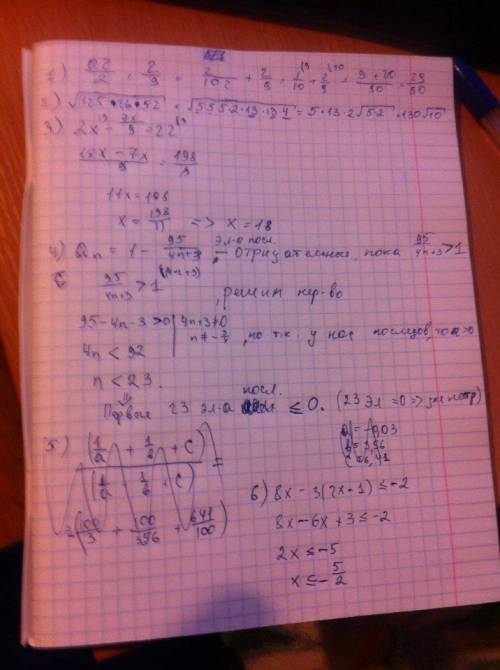 1) 0,2/2 + 2/9 = 2/10·2 + 2/9 = 1/10 + 2/9 = 9+20/90 = 29/90
2) √125·26·52 = √5·5·5·2·13·13·4 = 5·13·2√5·2 = 130√10
3) 2x - 7x/9 = 22
18x - 7x/9 = 198/9
11x = 198
x = 198/11 => x = 18
4) Qn = 1 - 95/4n+3, эл-а посл. - отрицательные, пока 95/4n+3 > 1
95/4n+3 > 1 , решим нер-во
95-4n-3 >0 | 4n+3≠0
n ≠ -3/4 , но т.к. у нас последов,
4n < 92
n < 23.
Первые 23 эл-а посл. ≤ 0. (23 эл =0 =>
5) (1/a + 1/b + c)
(1/a - 1/b + c) =
= (100/3 + 100/356 + 641/100)
c = 6,41
6) 8x - 3(2x+1) ≤ -2
8x - 6x + 3 ≤ -2
2x ≤ -5
x ≤ - 5/2